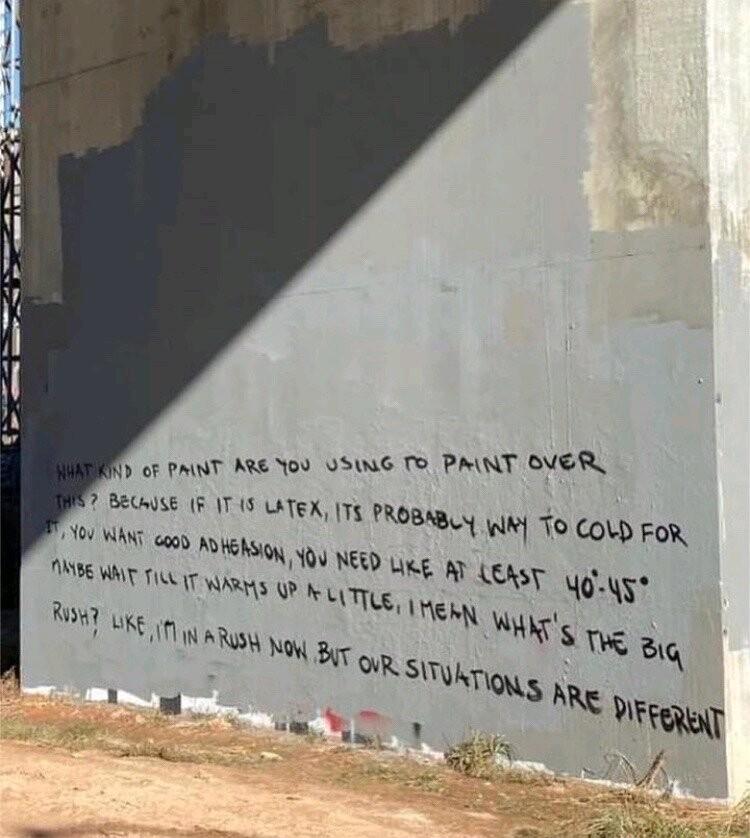 WHAT KIND OF PAINT ARE YOU USING TO PAINT OVER
THIS? BECAUSE IF IT IS LATEX, ITS PROBABLY WAY TO COLD FOR
IT, YOU WANT GOOD ADHEASION, YOU NEED LIKE AT LEAST 40°-45°
MAYBE WAIT TILL IT WARMS UP A LITTLE, I MEAN WHAT'S THE BIG
RUSH? LIKE, I'M IN A RUSH NOW BUT OUR SITUATIONS ARE DIFFERENT